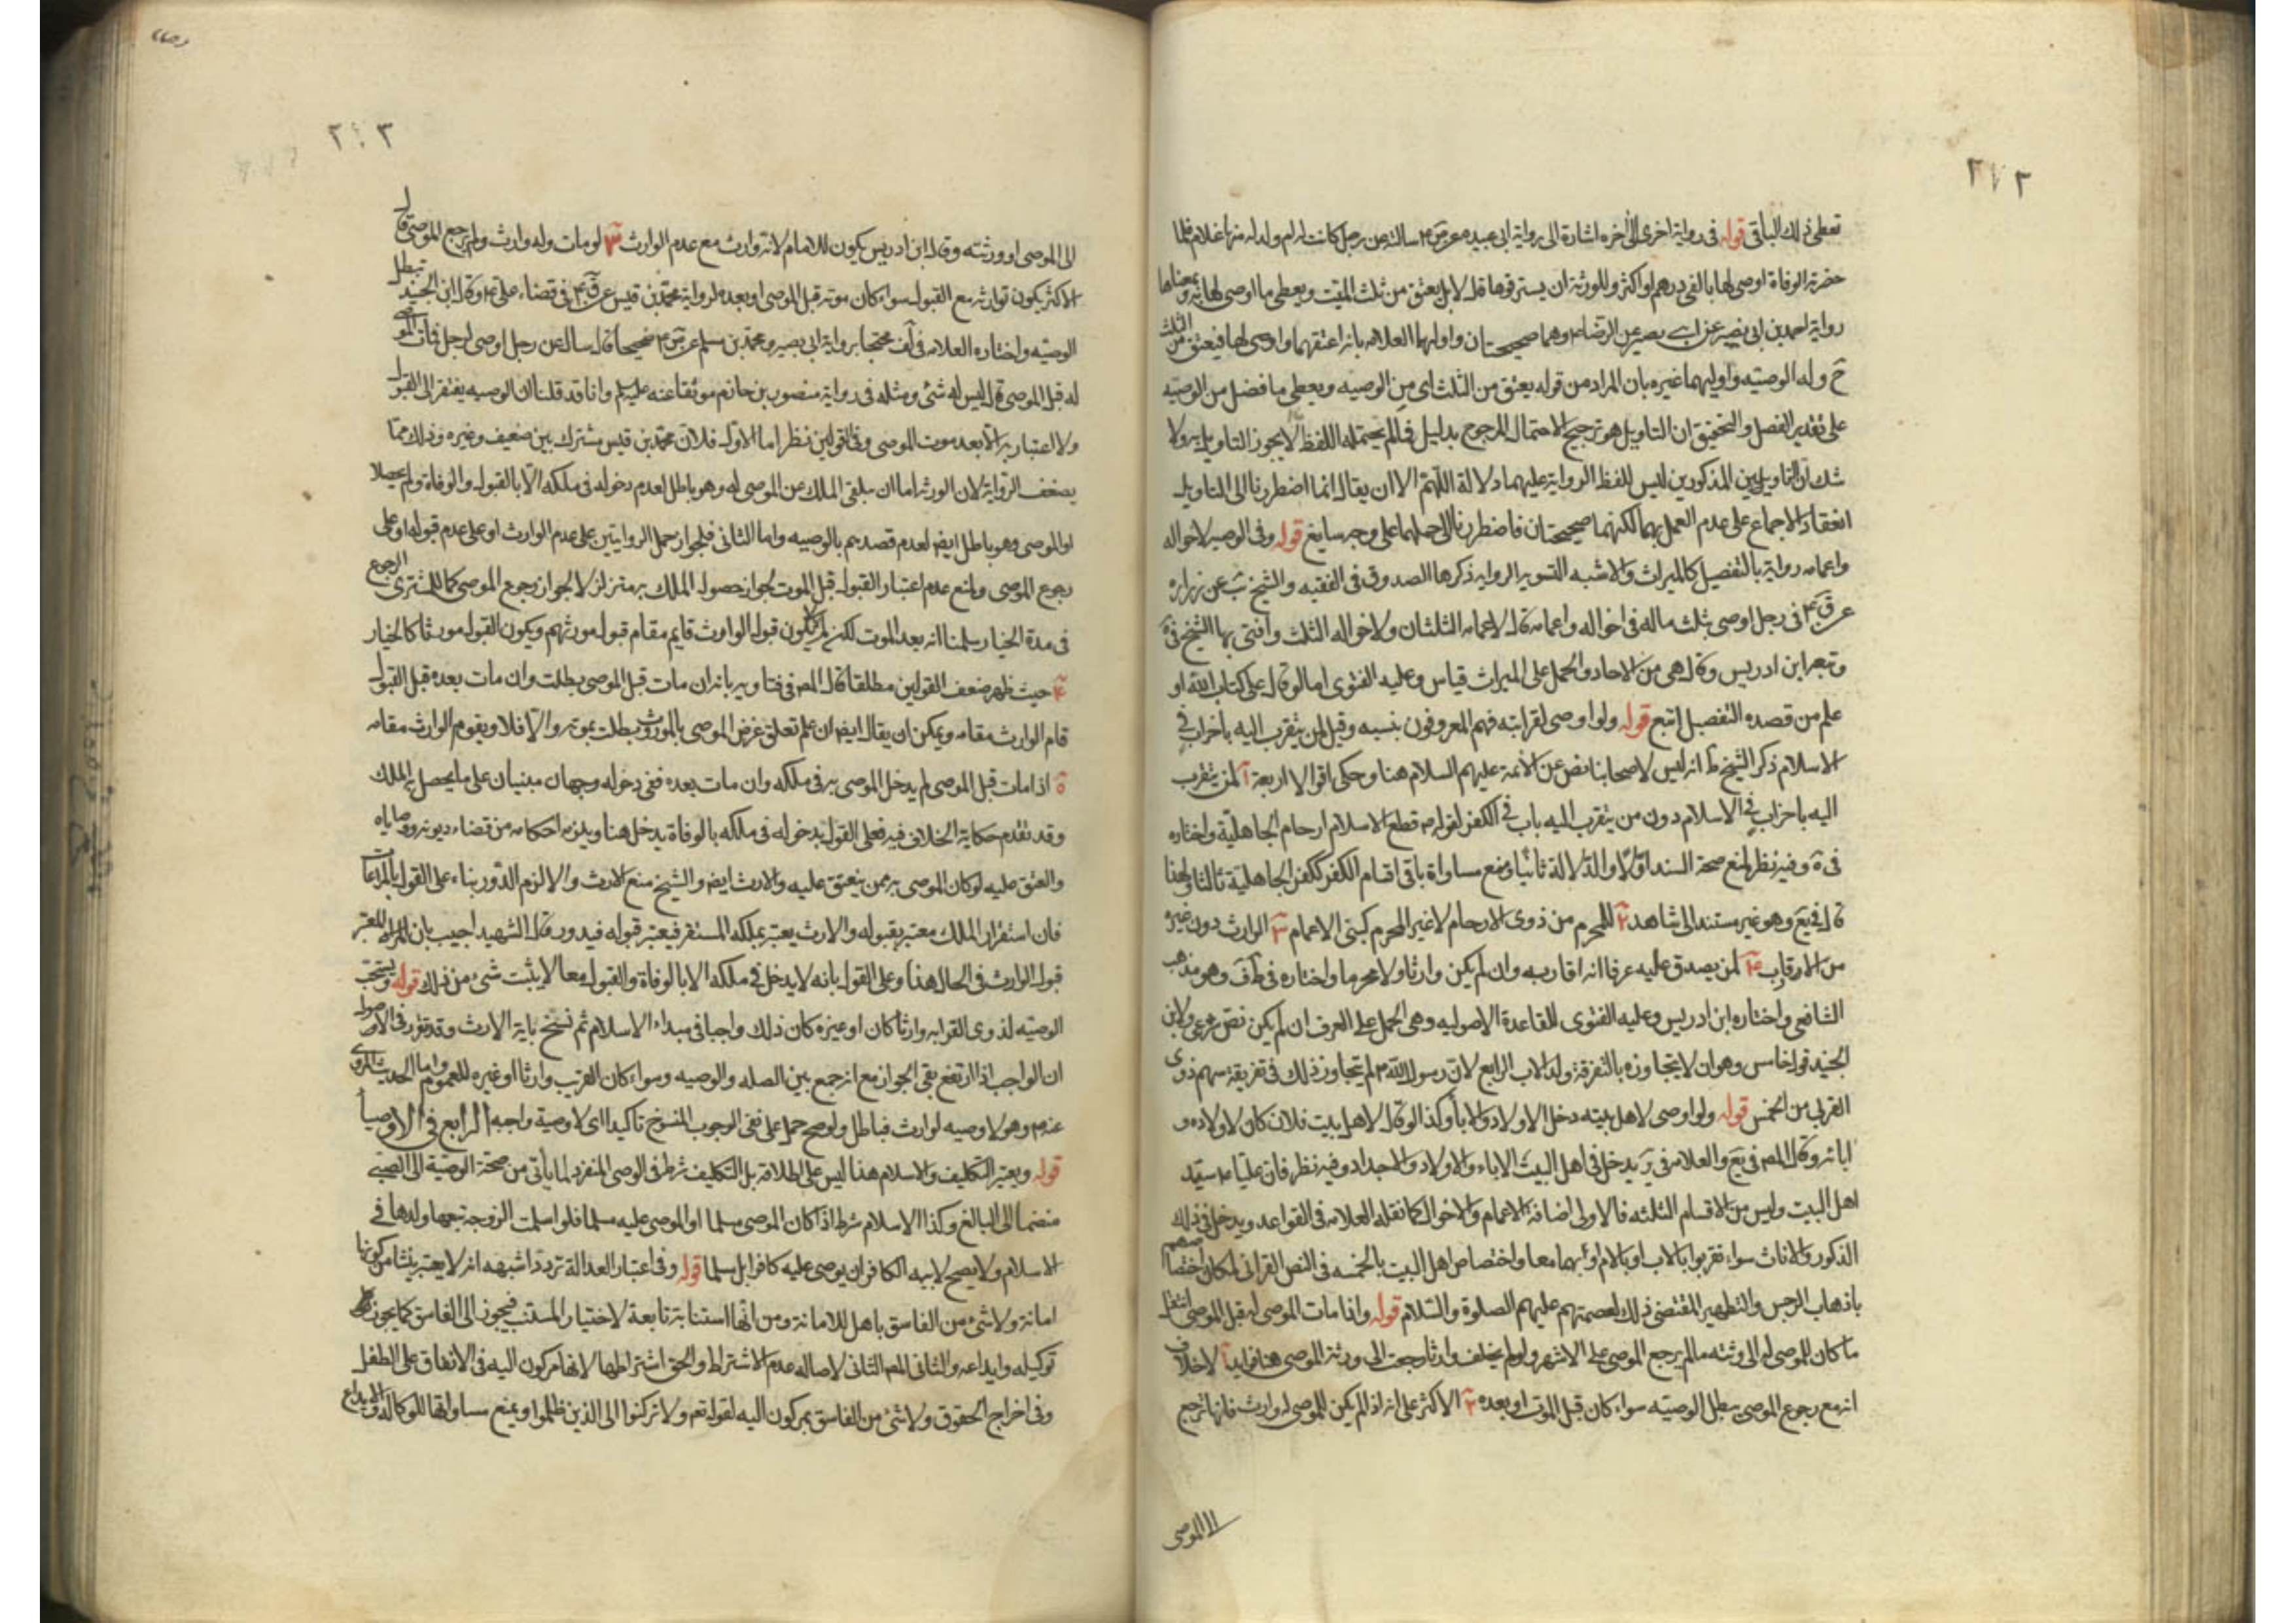 ٢٧٢
تعطى ذلك الباقى قوله فى رواية اخرى الى اخره اشارة الى رواية ابى عبيده عن ص ع سالته عن رجل كانت له ام ولد له منها غلام فلما
حضرته الوفاة اوصى لها بالفى درهم او اكثر وللورثة ان يسترقوها قال لا بل يعتق من ثلث الميت ويعطى ما اوصى لها به وبمعناها
رواية احمد بن ابى نصر عن ابى بصير عن الرضا ع وهما صحيحتان واولهما العلامه بانه اعتقهما واوصى لها فيعتق من الثلث
ح وله الوصيه واوليهما غيره بان المراد من قوله يعتق من الثلث اى من الوصيه ويعطى ما فضل من الوصيه
على تقدير الفضل والتحقيق ان التاويل هو ترجيح الاحتمال المرجوح بدليل فما لم يحتمله اللفظ لا يجوز التاويل به ولا
شك ان التاويلين المذكورين ليس للفظ الرواية عليهما دلالة اللهم الا ان يقال انما اضطررنا الى التاويل
انعقاد الاجماع على عدم العمل بهما لكنهما صحيحتان فاضطررنا الى حملهما على وجه سايغ قوله وفى الوصيه لاخواله
واعمامه رواية بالتفصيل كالميراث والاشبه التسويه الروايه ذكرها الصدوق فى الفقيه والشيخ يب عن زراره
عن ق ع فى رجل اوصى بثلث ماله فى اخواله واعمامه قال لاعمامه الثلثان ولاخواله الثلث وافتى بها الشيخ فى ية
وتبعه ابن ادريس وقال هى من الاحاد والحمل على الميراث قياس وعليه الفتوى اما لو قال على كتاب الله او
علم من قصده التفصيل اتبع قوله ولو اوصى لقرابته فهم المعروفون بنسبه وقيل لمن يتقرب اليه باخر اب فى
الاسلام ذكر الشيخ ط انه ليس لاصحابنا نص عن الائمة عليهم السلام هنا وحكى اقوالا اربعة ١ لمن يتقرب
اليه باخر اب فى الاسلام دون من يتقرب اليه باب فى الكفر لقوله ص قطع الاسلام ارحام الجاهلية واختاره
فى ة وفيه نظر لمنع صحة السند اولا والدلالة ثانيا ومنع مساواة باقى اقسام الكفر ككفر الجاهلية ثالثا ولهذا
قال فى يع وهو غير مستند الى شاهد ٢ للمحرم من ذوى الارحام لا غير المحرم كبنى الاعمام ٣ الوارث دون غيره
من الاقارب ٤ لمن يصدق عليه عرفا انه اقاربه وان لم يكن وارثا ولا محرما واختاره فى ط ف وهو مذهب
الشافعى واختاره ابن ادريس وعليه الفتوى للقاعدة الاصوليه وهى الحمل على العرف ان لم يكن نص شرعى ولابن
الجنيد قول خامس وهو ان لا يتجاوز به بالتفرقة ولد الاب الرابع لان رسول الله ص لم يتجاوز ذلك فى تفريقه سهم ذوى
القربى من الخمس قوله ولو اوصى لاهل بيته دخل الاولاد والاباء وكذا لو قال لاهل بيت فلان كان لاولاده و
ابائه وقال المص فى يع والعلامه فى ير يدخل فى اهل البيت الاباء والاولاد والاجداد وفيه نظر فان عليا ع سيد
اهل البيت وليس من الاقسام الثلثه فالاولى اضافة الاعمام والاخوال كما نقله العلامه فى القواعد ويدخل فى ذلك
الذكور والاناث سواء تقربوا بالاب او بالام او بهما معا واختصاص اهل البيت بالخمسه فى النص القرانى لمكان اختصاصهم
باذهاب الرجس والتطهير المقتضى ذلك لعصمتهم عليهم الصلوة والسلام قوله واذا مات الموصى له قبل الموصى انتقل
ما كان للموصى له الى ورثته ما لم يرجع الموصى على الاشهر ولو لم يخلف وارثا رجعت الى ورثة الموصى هنا فوايد ١ لا خلاف
انه مع رجوع الموصى يبطل الوصيه سواء كان قبل الموت او بعده ٢ الاكثر على انه اذا لم يكن للموصى له وارث فانها ترجع
الى الموصى
٢٧٣
الى الموصى او ورثته وقال ابن ادريس يكون للامام لانه وارث مع عدم الوارث ٣ لو مات وله وارث ولم يرجع الموصى قال
الاكثر يكون لوارثه مع القبول سواء كان موته قبل الموصى او بعده لرواية محمد بن قيس عن ق ع فى قضاء على ع وقال ابن الجنيد تبطل
الوصيه واختاره العلامه فى لف محتجا برواية ابى بصير ومحمد بن مسلم عن ص ع صحيحا قال سال عن رجل اوصى لرجل فمات الموصى
له قبل الموصى قال ليس له شئ ومثله فى رواية منصور بن حازم موثقا عنه عليه السلم وانا قد قلنا ان الوصيه يفتقر الى القبول
ولا اعتبار به الا بعد موت الموصى وفى القولين نظر اما الاول فلان محمد بن قيس مشترك بين ضعيف وغيره وذلك مما
يضعف الرواية لان الورثه اما ان يتلقى الملك من الموصى له وهو باطل لعدم دخوله فى ملكه الا بالقبول والوفاة ولم يحصلا
او الموصى وهو باطل ايضا لعدم قصدهم بالوصيه واما الثانى فلجواز حمل الروايتين على عدم الوارث او على عدم قبوله او على
رجوع الموصى ولمنع عدم اعتبار القبول قبل الموت لجواز حصول الملك به متزلزلا لجواز رجوع الموصى كما للمشترى الرجوع
فى مدة الخيار سلمنا انه بعد الموت لكن لم لا يكون قبول الوارث قايم مقام قبول مورثهم ويكون القبول مورثا كالخيار
٤ حيث ظهر ضعف القولين مطلقا قال المص فى فتاويه بانه ان مات قبل الموصى بطلت وان مات بعده قبل القبول
قام الوارث مقامه ويمكن ان يقال ايضا ان علم تعلق غرض الموصى بالمورث بطلت بموته والا فلا ويقوم الوارث مقامه
٥ اذا مات قبل الموصى لم يدخل الموصى به فى ملكه وان مات بعده ففى دخوله وجهان مبنيان على ما يحصل به الملك
وقد تقدم حكاية الخلاف فيه فعلى القول بدخوله فى ملكه بالوفاة يدخل هنا ويلزمه احكامه من قضاء ديونه ووصاياه
والعتق عليه لو كان الموصى به ممن ينعتق عليه والارث ايضا والشيخ منع الارث والا لزم الدور بناء على القول بالمراعات
فان استقرار الملك معتبر بقبوله والارث يعتبر بملكه المستقر فيعتبر قبوله فيدور وقال الشهيد اجيب بان المراد المعتبر
قبول الوارث فى الحال هذا وعلى القول بانه لا يدخل فى ملكه الا بالوفاة والقبول معا لا يثبت شئ من ذلك قوله ويستحب
الوصيه لذوى القرابه وارثا كان او غيره كان ذلك واجبا فى مبداء الاسلام ثم نسخ باية الارث وقد تقرر فى الاصول
ان الواجب اذا ارتفع بقى الجواز مع انه جمع بين الصله والوصيه وسواء كان القريب وارثا او غيره للعموم واما الحديث المروى
عنه ص وهو لا وصيه لوارث فباطل ولو صح حمل على نفى الوجوب المنسوخ تاكيدا اى لا وصية واجبه الرابع فى الاوصياء
قوله ويعتبر التكليف والاسلام هنا ليس على اطلاقه بل التكليف شرط فى الوصى المنفرد لما ياتى من صحة الوصية الى الصبى
منضما الى البالغ وكذا الاسلام شرط اذا كان الموصى مسلما او الموصى عليه مسلما فلو اسلمت الزوجة تبعها ولدها فى
الاسلام ولا يصح لابيه الكافر ان يوصى عليه كافرا بل مسلما قوله وفى اعتبار العدالة تردد اشبهه انه لا يعتبر ينشا من كونها
امانة ولا شئ من الفاسق باهل للامانة ومن انها استنابة تابعة لاختيار المستنيب فيجوز الى الفاسق كما يجوز
توكيله وايداعه والثانى للمص الثانى لاصاله عدم الاشتراط والحق اشتراطها لانها مركون اليه فى الانفاق على الطفل
وفى اخراج الحقوق ولا شئ من الفاسق بمركون اليه لقوله تعم ولا تركنوا الى الذين ظلموا ويمنع مساواتها للوكالة والايداع